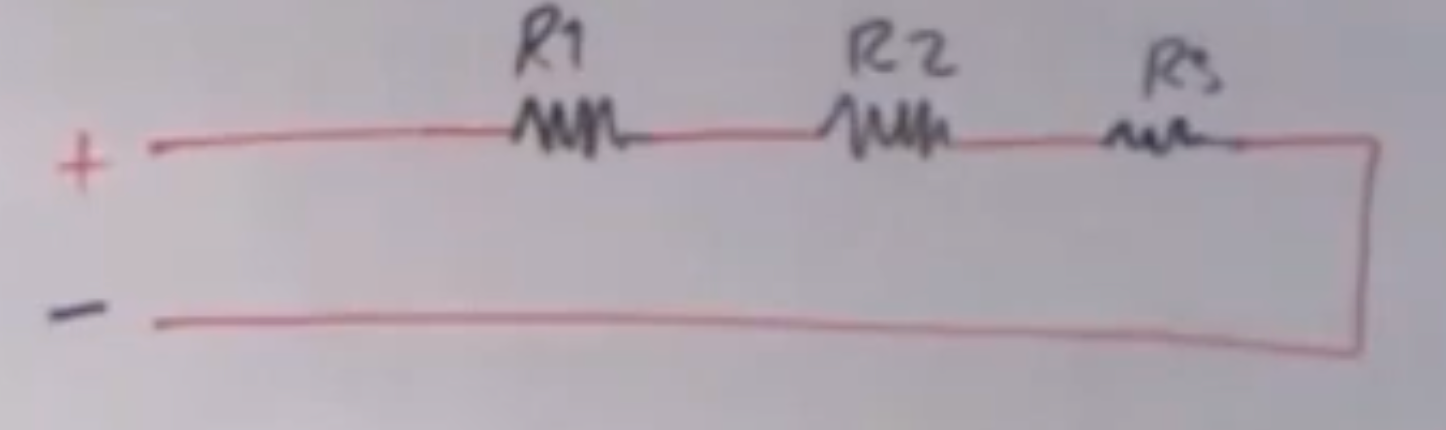 R1 R2 R3
+
-